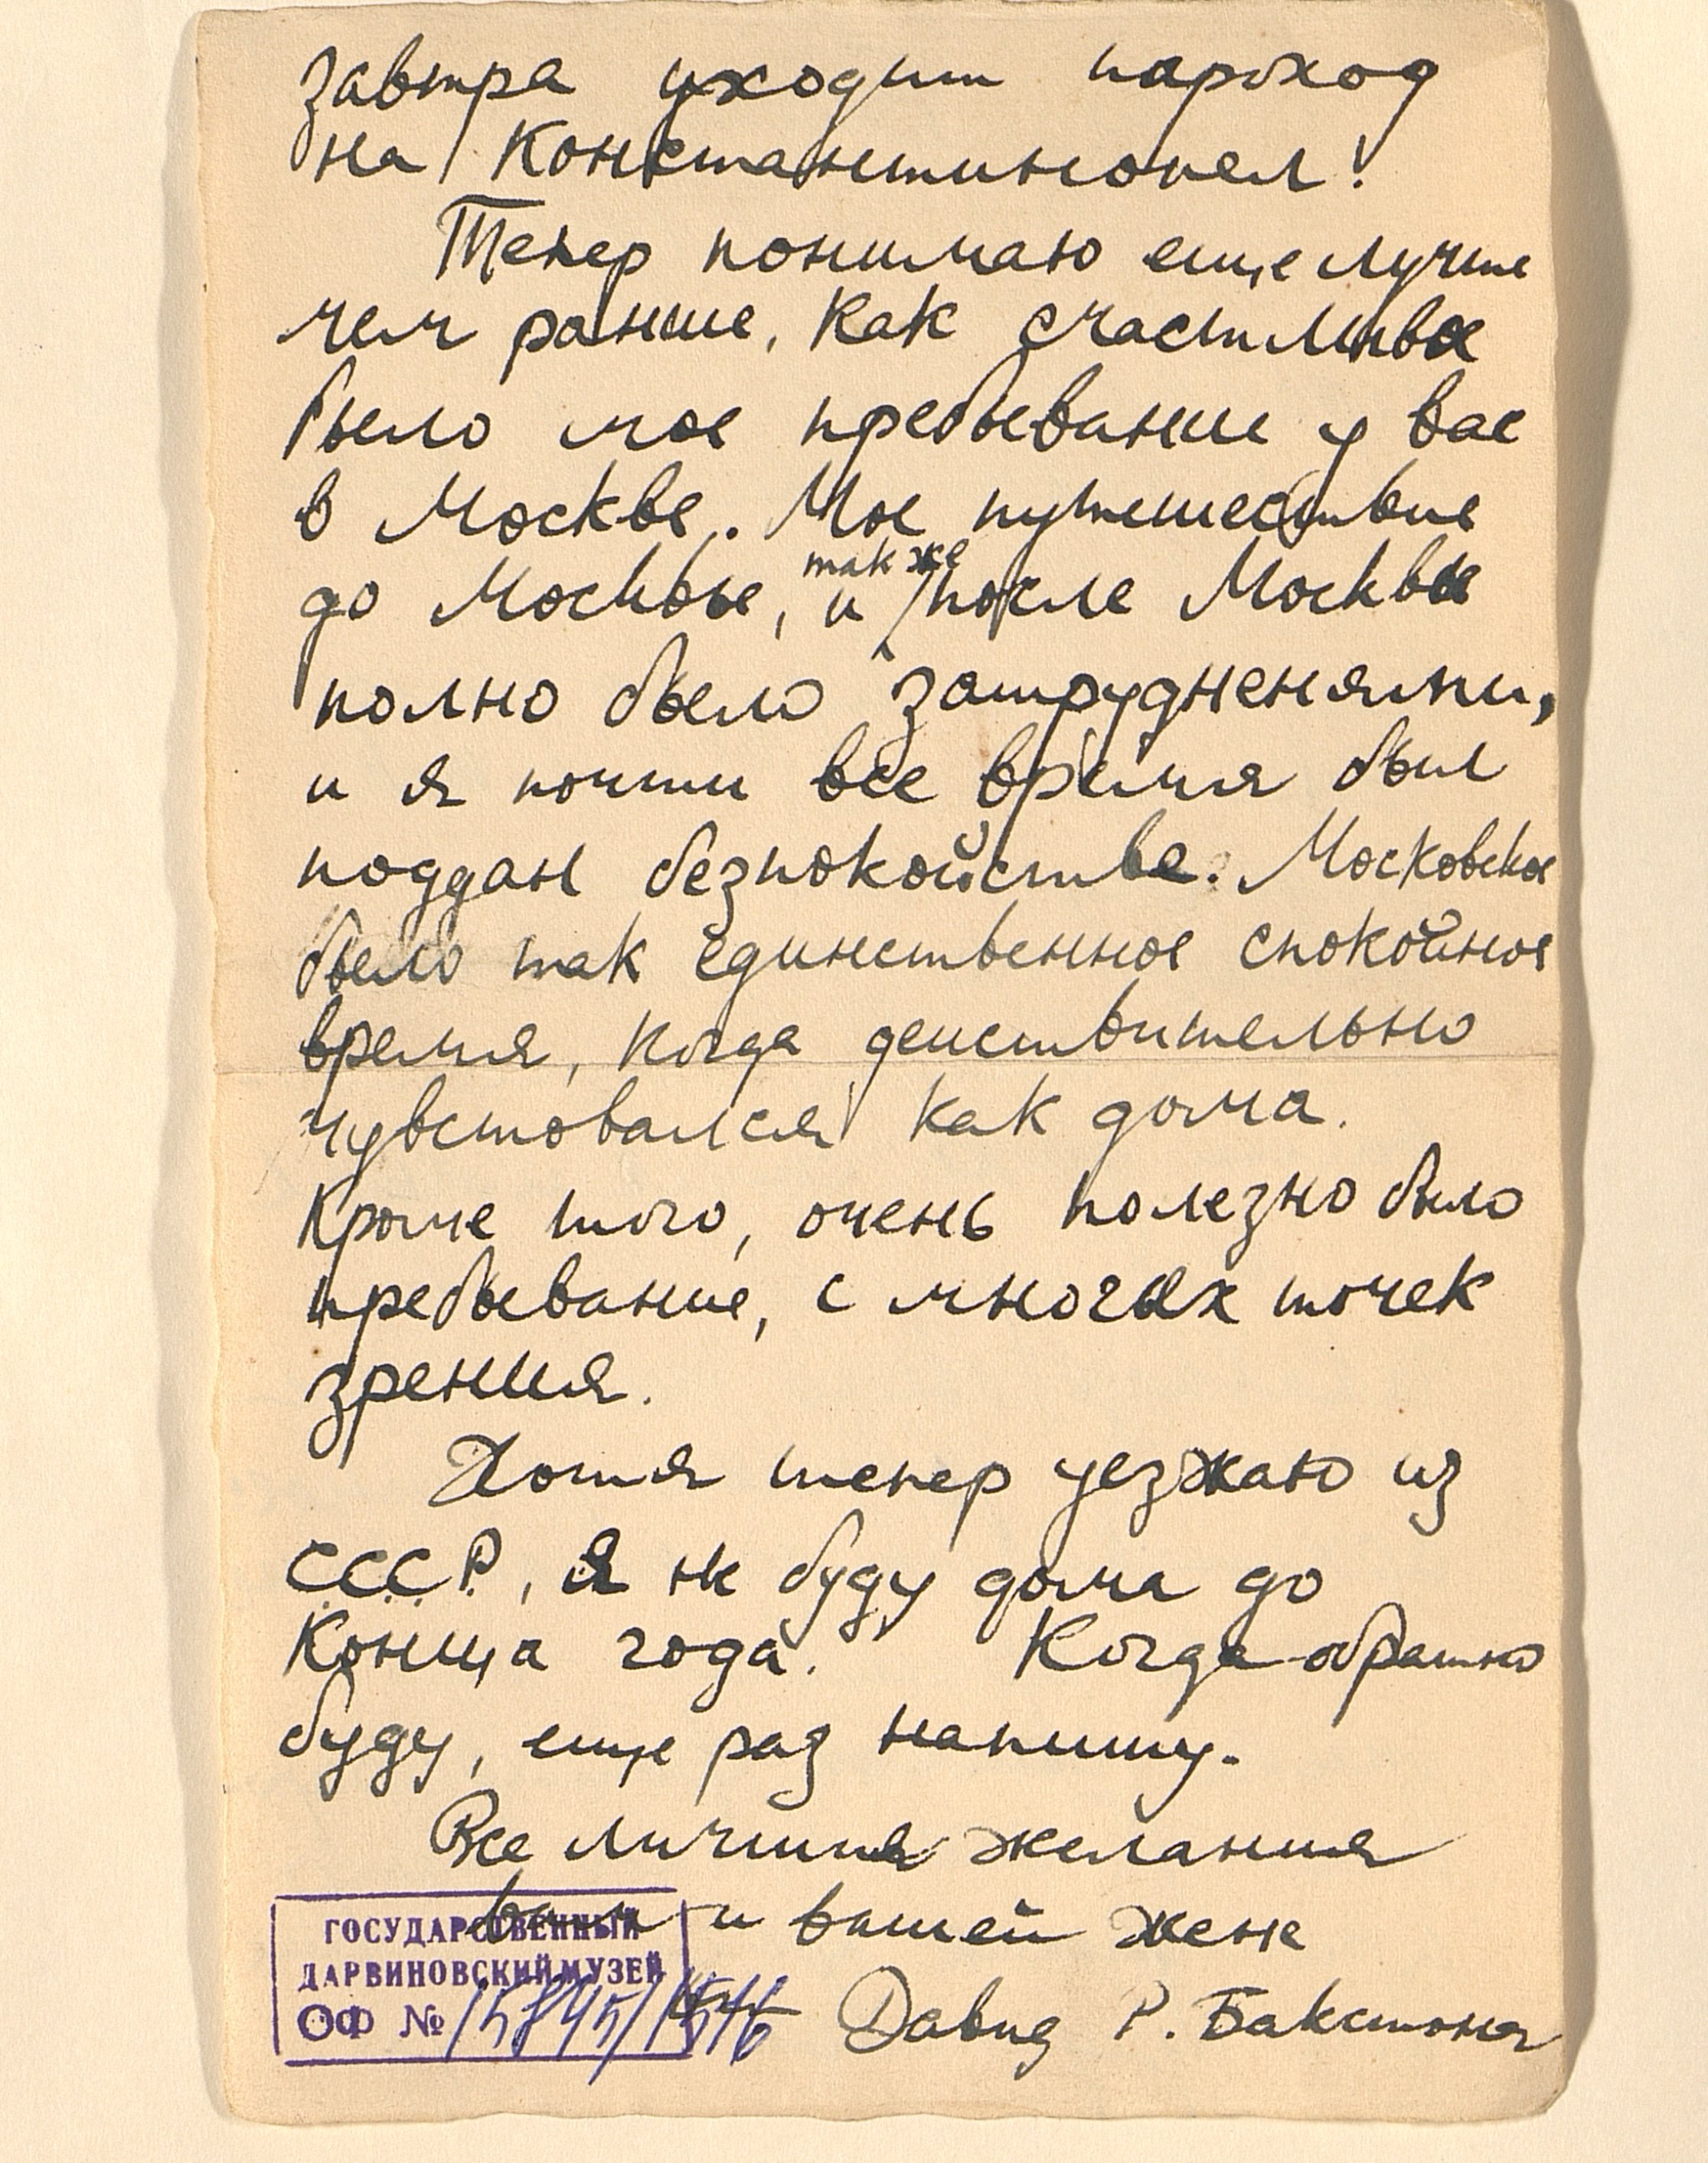 завтра уходит пароход
на Константинопел!
Тепер понимаю еще лучше
чем ранше, как счастливое
было мое пребывание у вас
в Москве. Мое путешествие
до Москвы, и также после Москвы
полно было затрудненями,
и я почти все время был
поддан безпокойстве. Московское
было так единственное спокойное
время, когда деиствительно
чувстовался как дома.
Кроме того, очень полезно было
пребывание, с многых точек
зрения.
Хотя тепер уезжаю из
С.С.С.Р., я не буду дома до
конца года. Когда обратно
буду, еще раз напишу.
Все личшия желания
вам и вашей жене
от Давид Р. Бакстона
ГОСУДАРСТВЕННЫЙ
ДАРВИНОВСКИЙ МУЗЕЙ
ОФ № 15845/1546